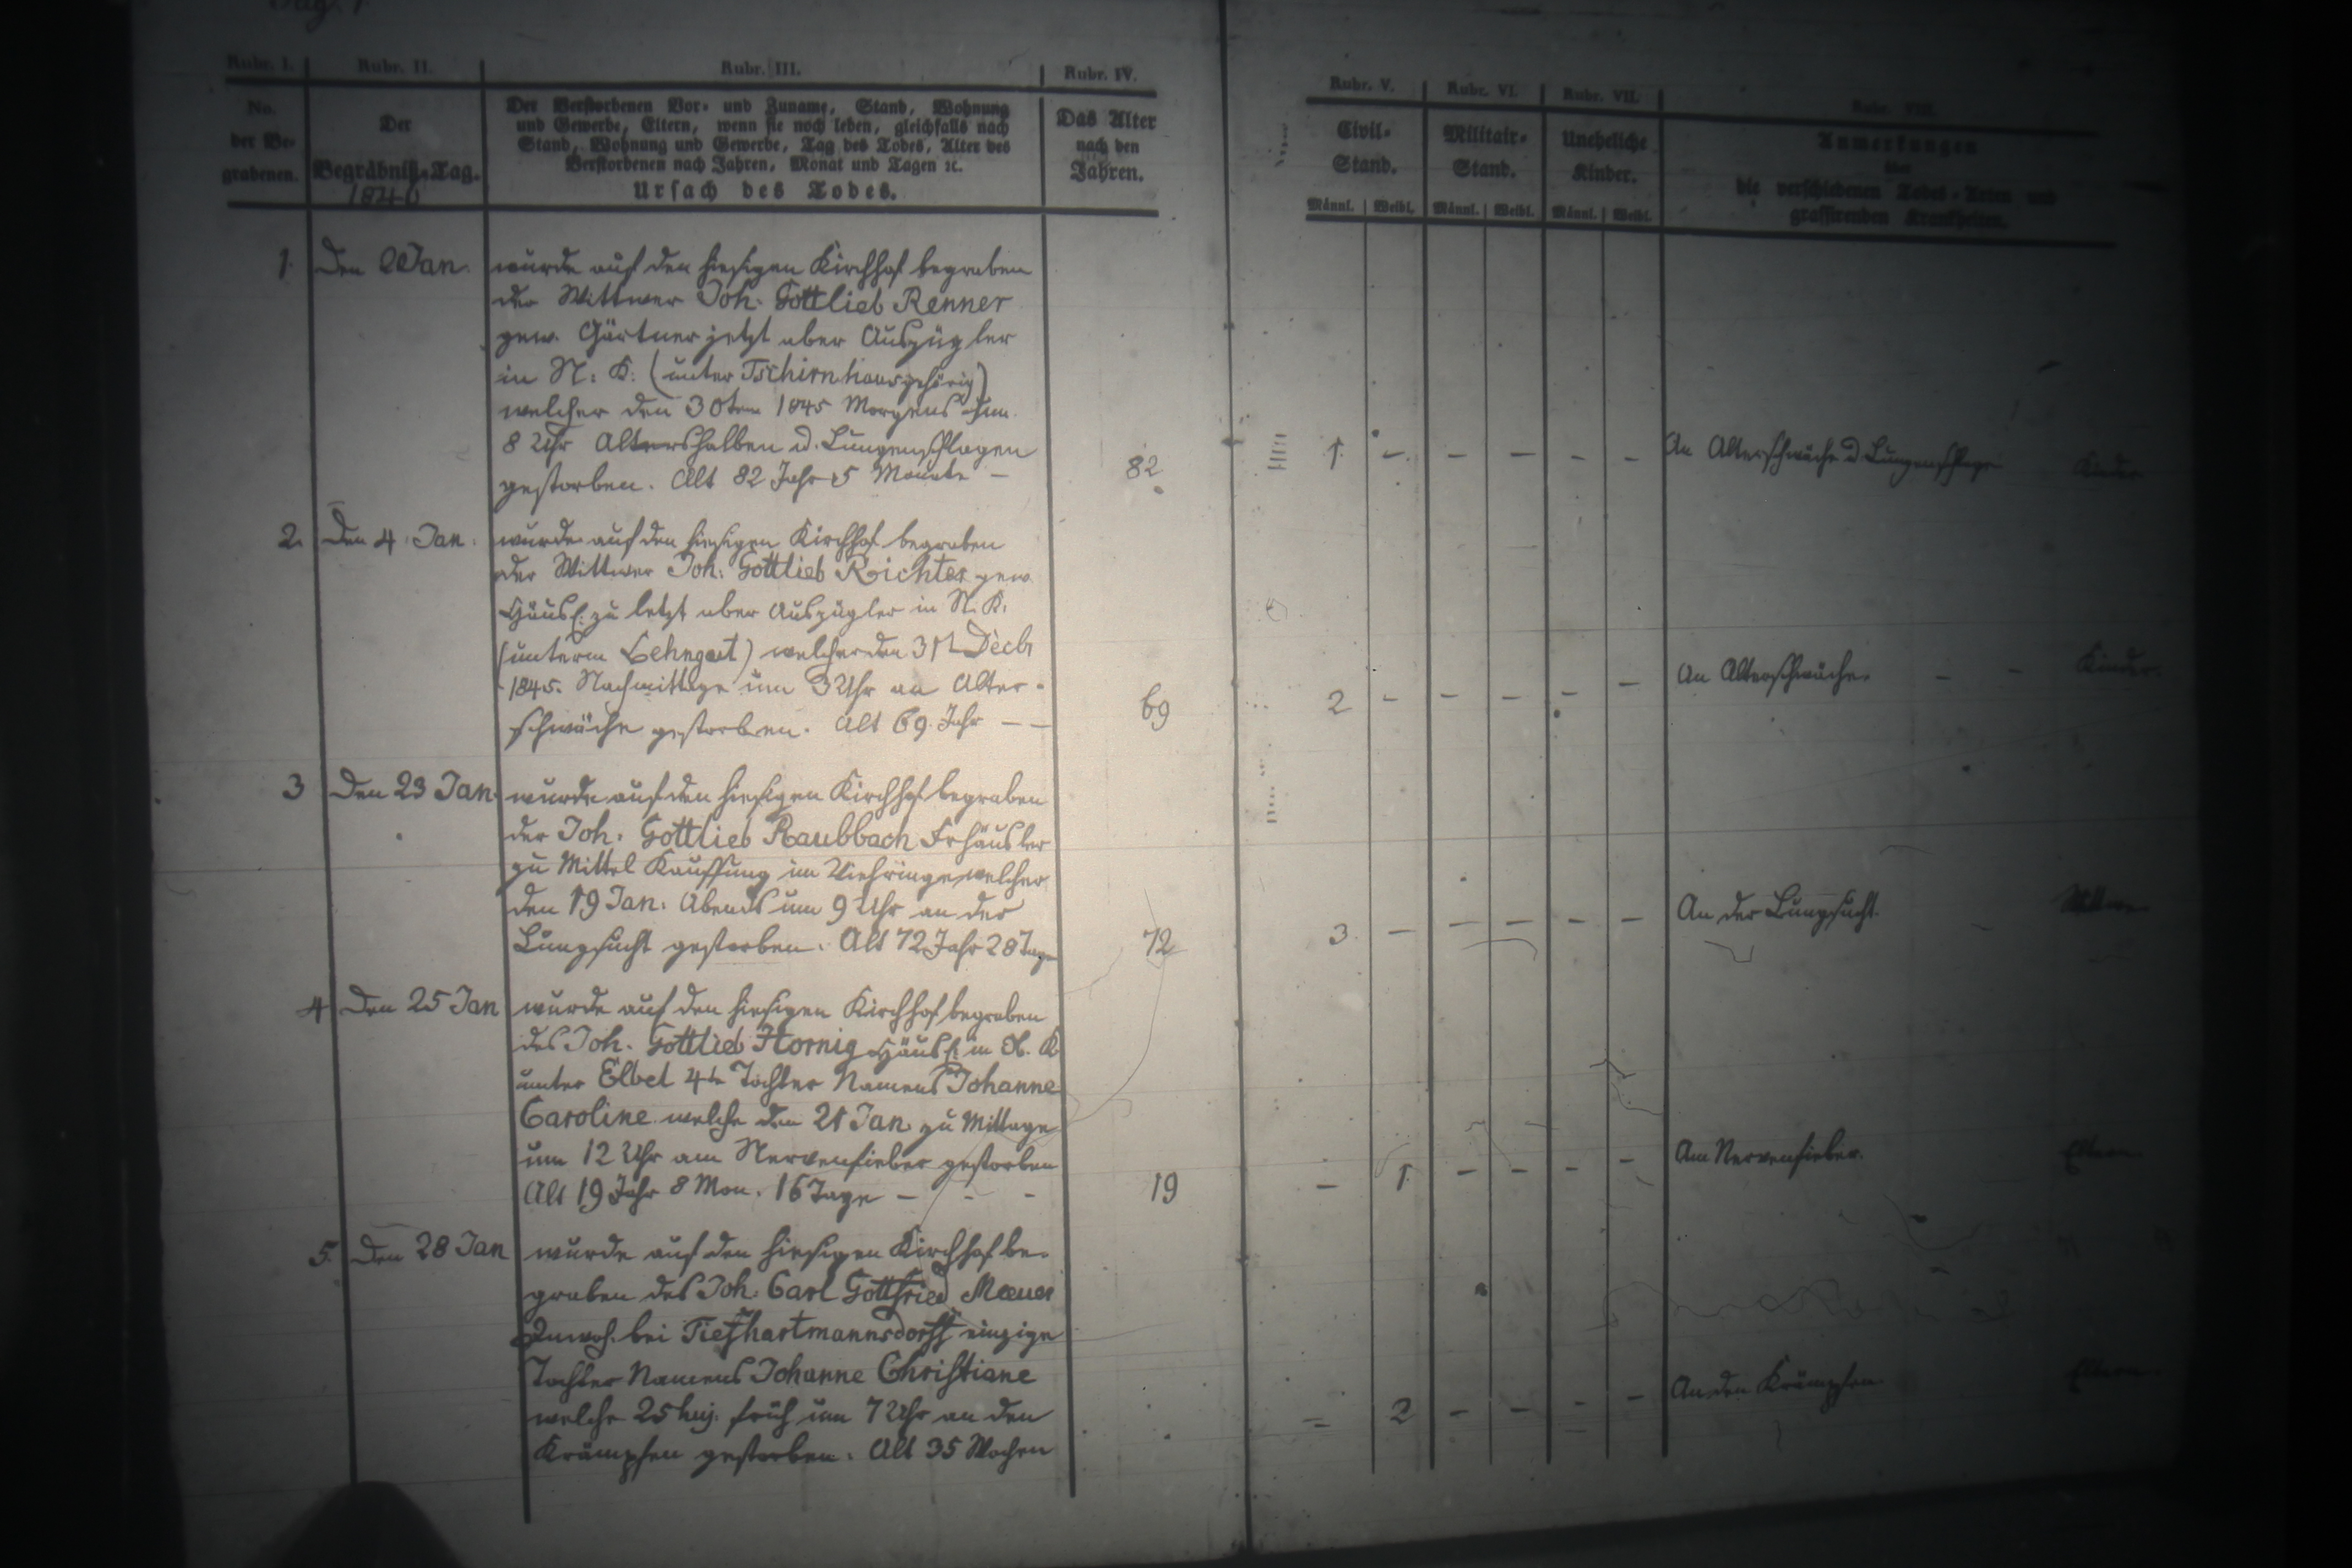 Pag. 1
Rubr. I. Rubr. II. Rubr. III. Rubr. IV. Rubr. V. Rubr. VI. Rubr. VII. Rubr. VIII.
No.
der Be-
grabenen.
Der
Begräbniß-Tag.
1846
Der Verstorbenen Vor- und Zuname, Stand, Wohnung
und Gewerbe, Eltern, wenn sie noch leben, gleichfalls nach
Stand, Wohnung und Gewerbe, Tag des Todes, Alter des
Verstorbenen nach Jahren, Monat und Tagen ꝛc.
Ursach des Todes.
Das Alter
nach den
Jahren.
Civil-
Stand.
Männl. Weibl.
Militair-
Stand.
Männl. Weibl.
Uneheliche
Kinder.
Männl. Weibl.
Anmerkungen
über
die verschiedenen Todes-Arten und
grassirenden Krankheiten.
1. Den 2 Jan. wurde auf den hiesigen Kirchhof begraben
der Wittwer Joh: Gottlieb Renner
gew. Gärtner jetzt aber Auszügler
in N: K: (unter Tschirnhaus gehörig)
welcher den 30ten 1845 Morgens um
8 Uhr Altershalben u. Lungenschlagen
gestorben. Alt 82 Jahr 5 Monate – 82 1. – – – – – An Altersschwäche u Lungenschlage Kinder
2. Den 4. Jan. wurde auf den hiesigen Kirchhof begraben
der Wittwer Joh: Gottlieb Richter gew.
Häusl: zu letzt aber Auszügler in N. K.
(unterm Lehngut) welcher den 31t Decbr
1845. Nachmittage um 3 Uhr an Alter-
schwäche gestorben. Alt 69. Jahr – – 69 2 – – – – – An Altersschwäche. – – Kinder.
3 Den 23 Jan. wurde auf den hiesigen Kirchhof begraben
der Joh: Gottlieb Raubbach Frhäusler
zu Mittel Kauffung im Viehringe welcher
den 19 Jan: Abends um 9 Uhr an der
Lungsucht gestorben. Alt 72 Jahr 28 Tage 72 3. – – – – – An der Lungsucht. Wittwe
4 Den 25 Jan wurde auf den hiesigen Kirchhof begraben
des Joh. Gottlieb Hornig Häusl: in Ob. K
unter Elbel 4te Tochter Namens Johanne
Caroline welche den 21 Jan. zu Mittage
um 12 Uhr am Nervenfieber gestorben
Alt 19 Jahr 8 Mon. 16 Tage – – – 19 – 1. – – – – Am Nervenfieber. Eltern.
5. Den 28 Jan wurde auf den hiesigen Kirchhof be-
graben des Joh: Carl Gottfried
Inwoh. bei Tiefhartmannsdorff einzige
Tochter Namens Johanne Christiane
welche 25 huj. früh um 7 Uhr an den
Krämpfen gestorben: Alt 35 Wochen – 2 – – – – An den Krämpfen. Eltern